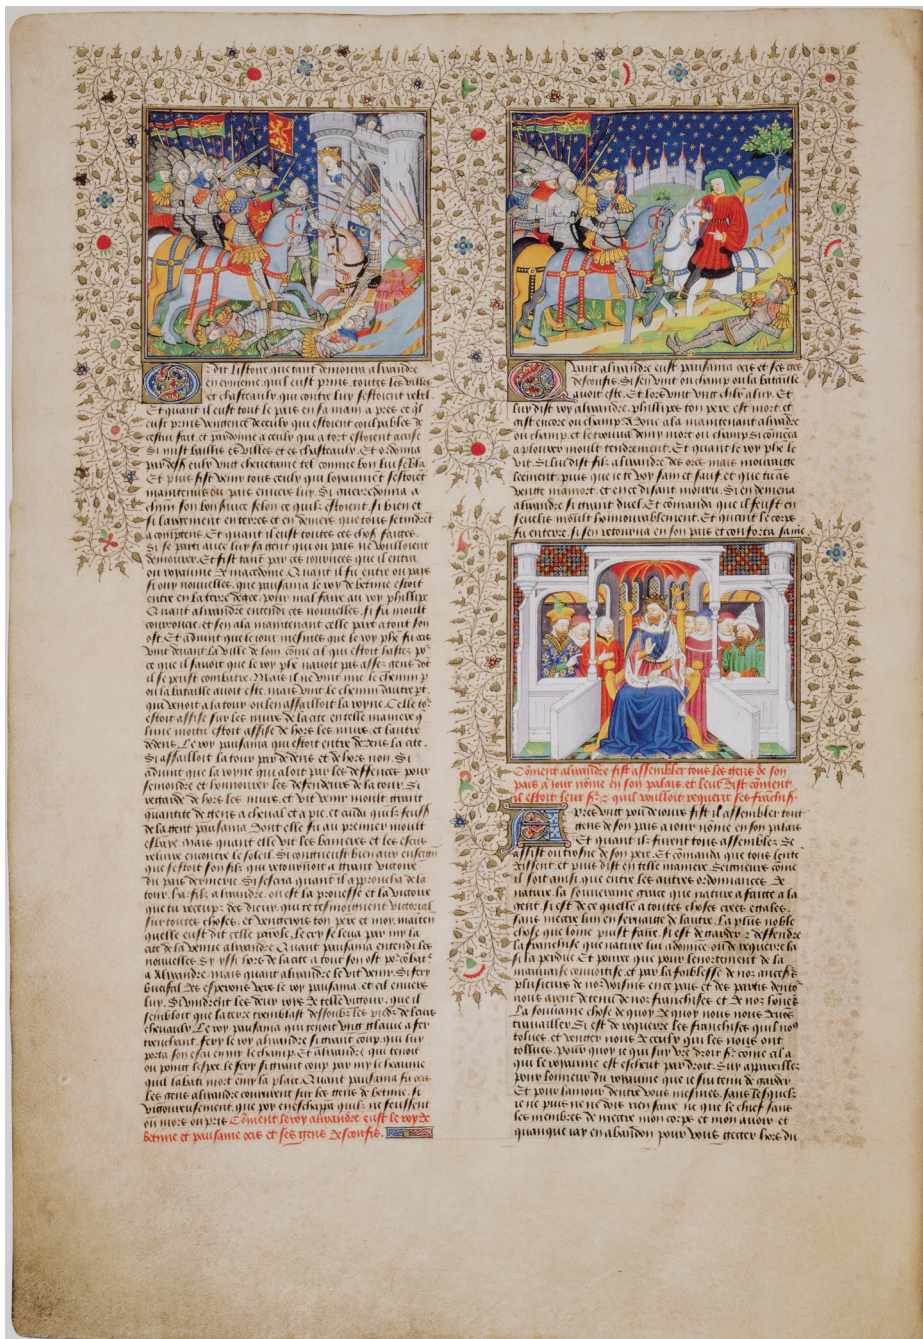 Or dit listoire que tant demoura alixandre
en ermenie quil eust prins toutes les villes
et chasteaulx qui contre luy sestoient rebel
Et quant il eust tout le pais en sa main apres ce quil
eust prins vengence de ceulx qui estoient coulpables de
cestui fait et pardonne a ceulx qui a tort estoient acuse
Si mist baillis es villes et es chasteaulx Et ordonna
par dessus eulx ung chevetaine tel comme bon luy sembla
Et puis fist venir tous ceulx qui loyaument sestoient
maintenus ou pais envers luy Si guerredonna a
chun son bon service selon ce quilz estoient si bien et
si largement en terres et en deniers que tous se tindrent
a comptens Et quant il eust toutes ces choses faictes
Si se parti avec luy sa gent qui ou pais ne voulloient
demourer Et fist tant par ses iournees que il entra
ou royaume de macedoine Quant il fu entre ou pais
si ouy nouvelles que pausania le roy de betinie estoit
entre en la terre de grece pour mal faire au roy phillipe
Quant alixandre entendi ces nouvelles si fu moult
courroucie et sen ala maintenant celle part a tout son
ost Et advint que le iour mesmes que le roy phe fu
vint devant la ville de
ce que il savoit que le roy phe navoit pas assez gens dont
il se peust combatre Mais il ne vint mie le chemin p
ou la bataille avoit este mais vint le chemin dautre pt
qui venoit a la tour ou len assailloit la royne Celle to
estoit assise sur les murs de la cite en telle maniere q
lune moitie estoit assise de hors les murs et lautre
dedens Le roy pausania qui estoit entre dedens la cite
Si assailloit la tour par dedens et de hors non Si
advint que la royne qui aloit par les deffences pour
semondre et honnourer les defendeurs de la tour Si
regarde de hors les murs et vit venir moult grant
quantite de gens a cheval et a pie et cuida que feussent
de la gent pausania Dont elle fu au premier moult
esbaye Mais quant elle vit les banieres et les escus
reluire encontre le soleil Si congneust bien aux enseignes
que sestoit son filz qui retournoit a grant vigour
du pais dermenie Si sescria quant il approucha de la
tour ha filz alixandre ou est la prouesse et la vigour
que tu receuz des dieux qui te tesmoignent victorial
sur toutes choses et vengeras ton pere et moy mainten
quelle eust dit celle parole le cry se leva par my la
cite de la venue alixandre Quant pausania entendi les
nouvelles Sy yssi hors de la cite a tout son ost por combatre
a Alixandre mais quant alixandre le vit venir Si fery
bucifal des esperons vers le roy pausania et cil envers
luy Si vindrent les deux roys de telle vigour que il
sembloit que la terre tremblast dessoubz les piedz de leurs
chevaulx Le roy pausania qui tenoit ung glaive a fer
trenchant fery le roy alixandre si grant coup qui luy
porta son escu en my le champ Et alixandre qui tenoit
ou poing lespee le fery si grant coup par my le heaume
quil labati mort en my la place Quant pausania fu ocis
Les gens alixandre coururent sur les gens de betinie si
vigoureusement que poy en eschapa quilz ne feussent
ou mors ou pris Coment le roy alixandre eust le roy de
betinie et pausanie ocis et ses gens desconfis
Quant alixandre eust pausania ocis et ses gens
desconfis Si sen vint ou champ ou la bataille
avoit este Et lors vint ung chlr a luy Et
luy dist roy alixandre phillipe ton pere est mort et
gist encore ou champ Adonc ala maintenant alixandre
ou champ et le trouva demy mort ou champ Si conmenca
a plourer moult tendrement Et quant le roy phe le
vit Si lui dist filz alixandre des ores mais mourray ie
liement puis que ie te voy sain et sauf et que tu as
vengie ma mort et en ce disant mourut Si en demena
alixandre si grant duel Et comanda que il feust en
seveliz moult honnourablement Et quant le corps
fu enterre si sen retourna en son pais et conforta sa mere
Coment alixandre fist assembler tous les gens de son
pais a jour nome en son palais et leur dist coment
il estoit leur sr & quil voulloit requerir ses franchises
Apres dont poy de iours fist il assembler tout
gens de son pais a iour nome en son palais
Et quant ilz furent tous assemblez Se
assist ou trosne de son pere Et comanda que tous lente
dissent et puis dist en telle maniere Seigneurs come
il soit ainsi que entre les autres ordonnances de
nature la souveraine grace que nature a faicte a la
gent si est de ce quelle a toutes choses crees egales
sans mectre lun en servaige de lautre La plus noble
chose que lome puist faire si est de garder & deffendre
la franchise que nature luy a donnee ou de requerre la
si la perdue Et pource que pour lenortement de la
mauvaise convoitise et par la foiblesse de noz ancestres
plusieurs de noz voisins en ce pais et des parties dento
nous ayent detenu de noz franchises et de noz honneurs
La souvraine chose de quoy nous nous devons
travailler Si est de requerre les franchises quil nous
tolues et venger nous de ceulx qui les nous ont
tollues pour quoy ie qui suy vre droit sr come cil a
qui le royaume est escheu par droit Suy appareillez
pour lonneur du royaume que ie suy tenu de garder
Et pour lamour dentre vous mesmes sans lesquelz
ie ne puis ne ne dois rien faire ne que le chief sans
les membres de mectre mon corps et mon avoir et
quanque iay en abandon pour vous gecter hors du